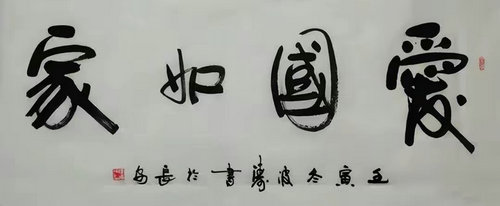 愛國如家
壬寅冬波濤書於長